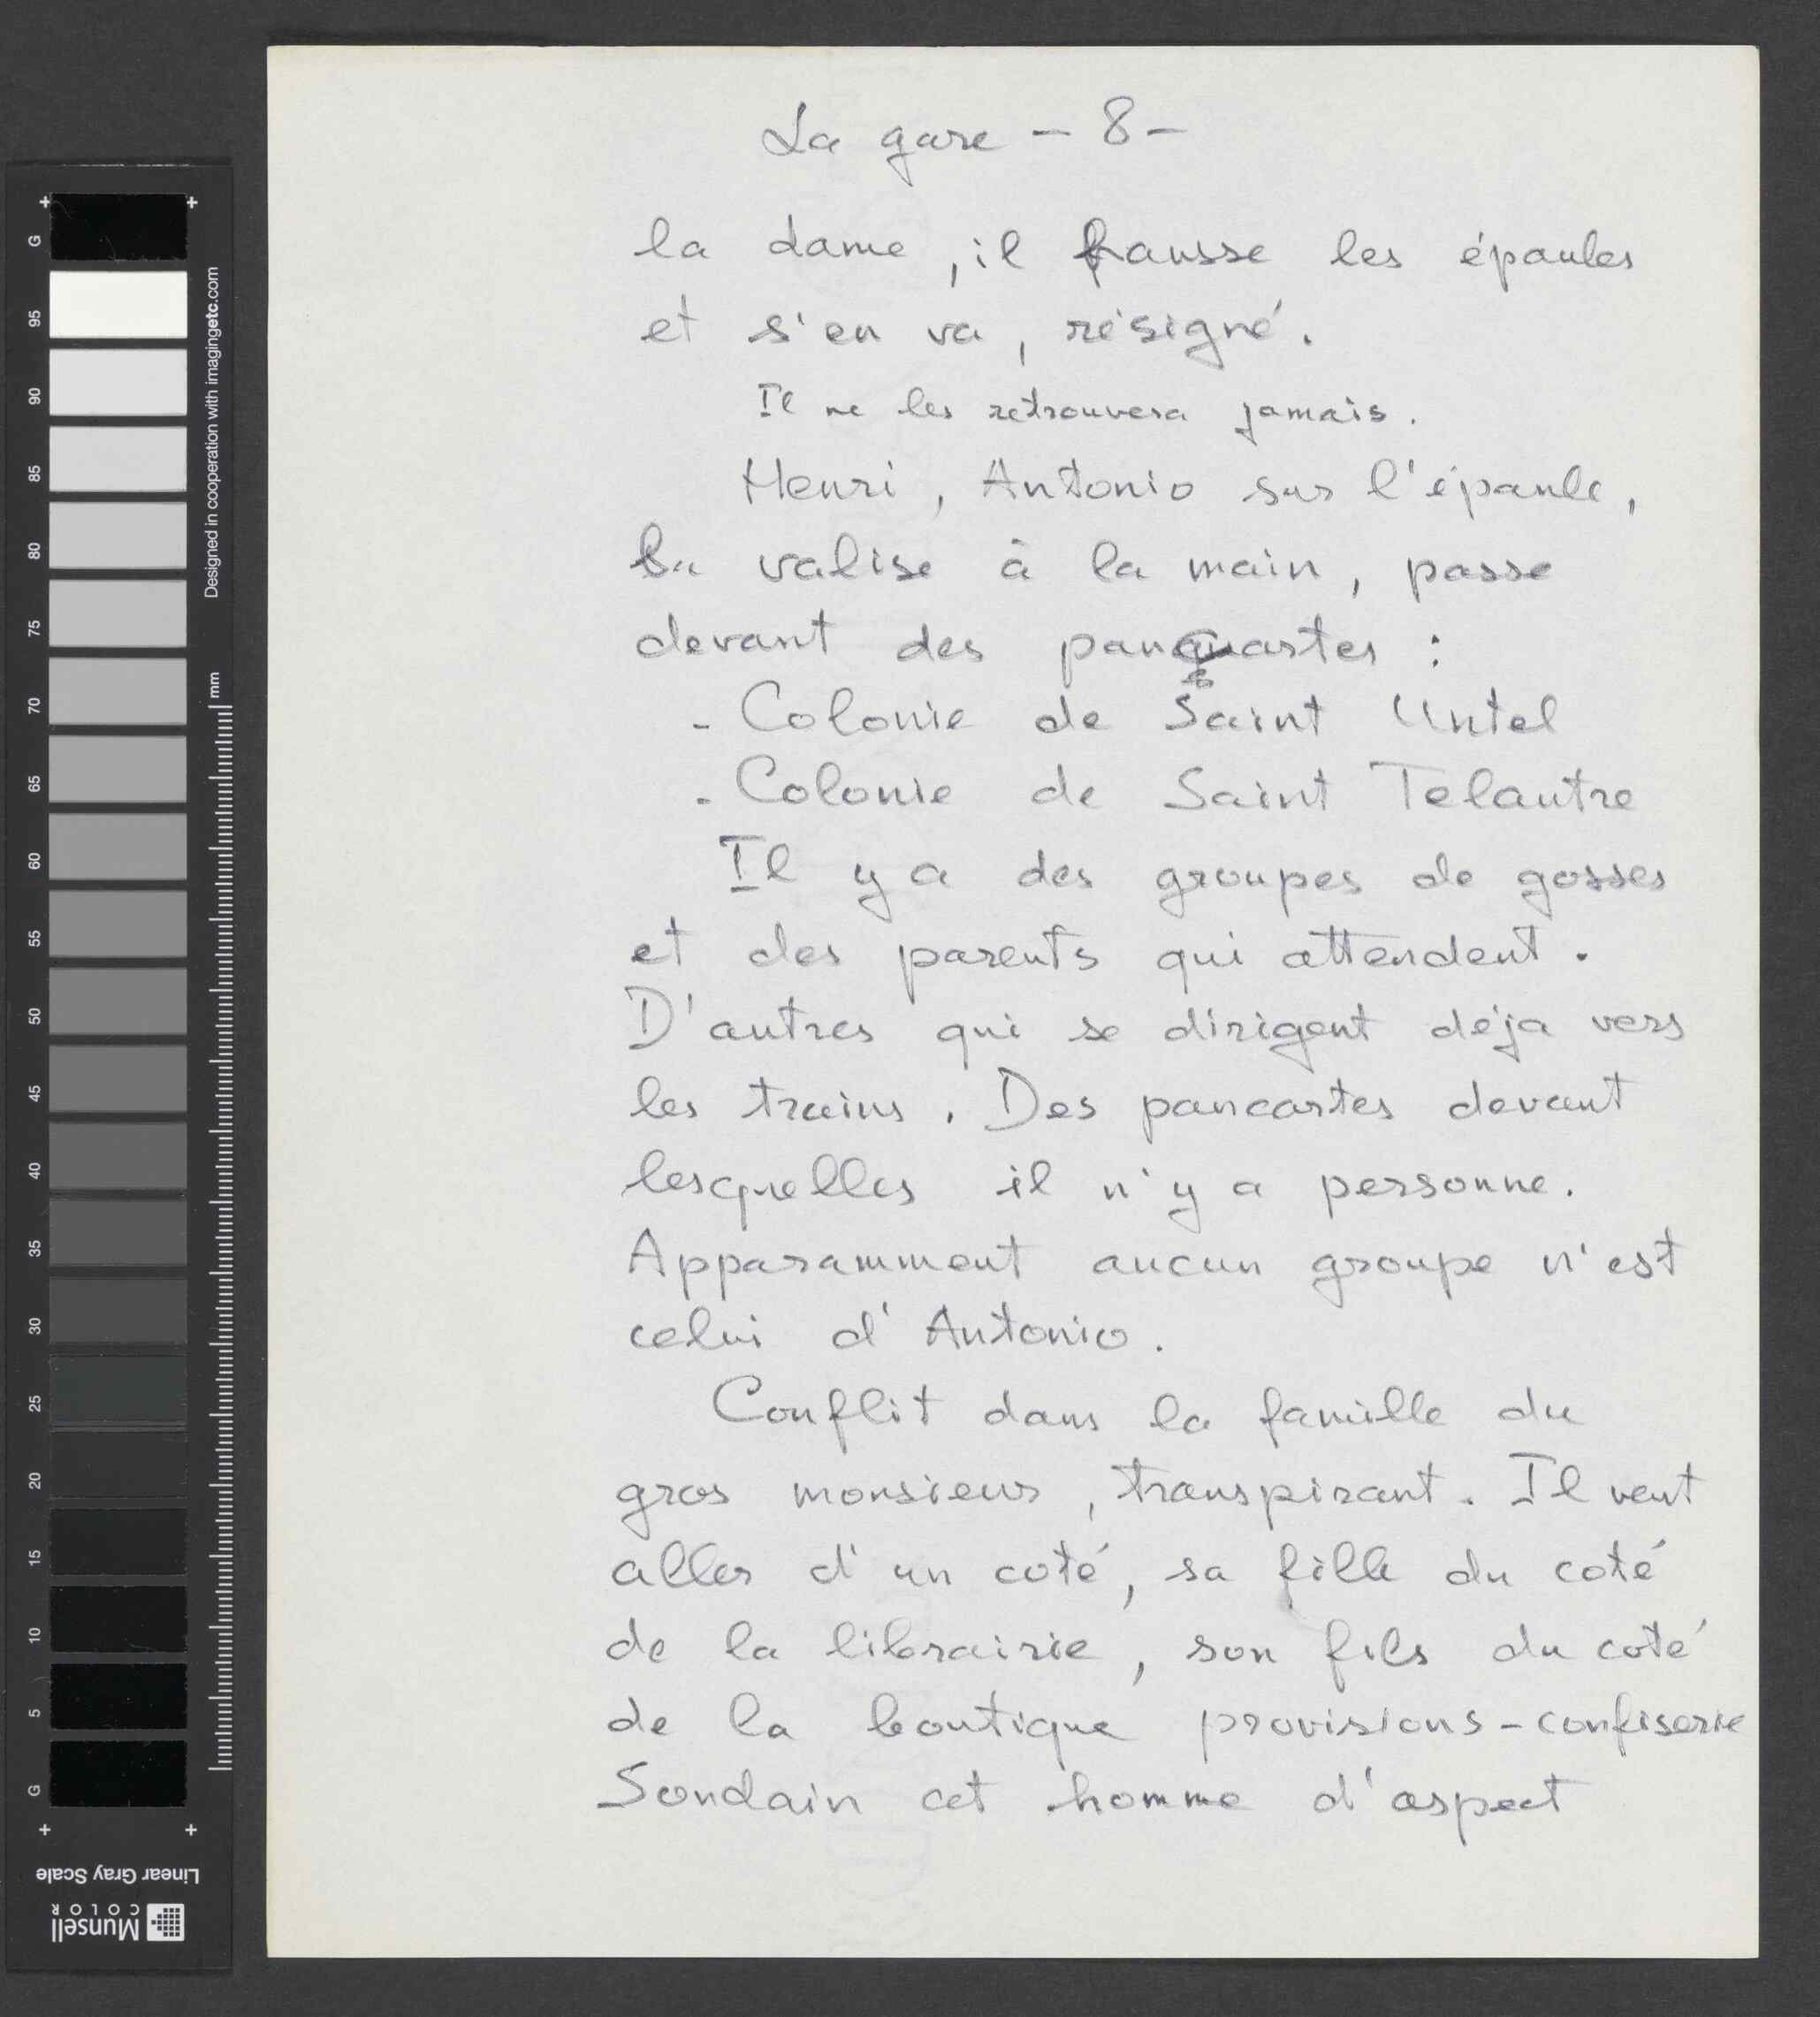 La gare - 8 -
la dame, il hausse les épaules
et s'en va, résigné.
Il ne les retrouvera jamais.
Henri, Antonio sur l'épaule,
la valise à la main, passe
devant des pancartes :
- Colonie de Saint Untel
- Colonie de Saint Telautre
Il y a des groupes de gosses
et des parents qui attendent.
D'autres qui se dirigent déja vers
les trains. Des pancartes devant
lesquelles il n'y a personne.
Apparamment aucun groupe n'est
celui d'Antonio.
Conflit dans la famille du
gros monsieur, transpirant. Il veut
aller d'un coté, sa fille du coté
de la librairie, son fils du coté
de la boutique provisions-confiserie
Soudain cet homme d'aspect
G 95 90 85 80 75 70 65 60 55 50 45 40 35 30 25 20 15 10 5 G
Designed in cooperation with imagingetc.com
mm
Linear Gray Scale
Munsell
COLOR